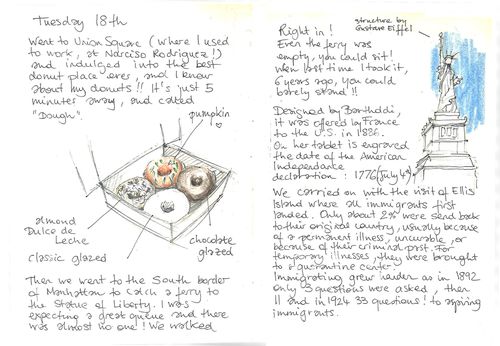 Tuesday 18th
Went to Union Square (where I used
to work, at Narciso Rodriguez!)
and indulged into the best
donut place ever, and I know
about my donuts!! It's just 5
minutes away, and called
"Dough".
pumpkin
almond
Dulce de
Leche
classic glazed
chocolate
glazed
Then we went to the South border
of Manhattan to catch a ferry to
the Statue of Liberty. I was
expecting a great queue and there
was almost no one! We walked
Right in!
Even the ferry was
empty, you could sit!
when last time I took it,
6 years ago, you could
barely stand!!
structure by
Gustave Eiffel
Designed by Bartholdi,
it was offered by France
to the U.S. in 1886.
On her tablet is engraved
the date of the American
Independance
declaration : 1776 (July 4th)
We carried on with the visit of Ellis
Island where all immigrants first
landed. Only about 2% were send back
to their original country, usually because
of a permanent illness, uncurable, or
because of their criminal past. For
temporary illnesses, they were brought
to a quarantine center.
Immigrating grew harder as in 1892
only 3 questions were asked, then
11 and in 1924 33 questions! to aspiring
immigrants.